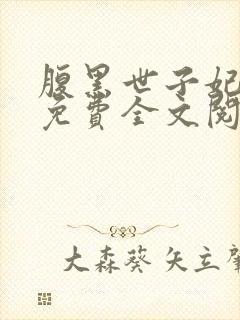 腹黑世子妃
免費全文閱
大森葵 矢立肇